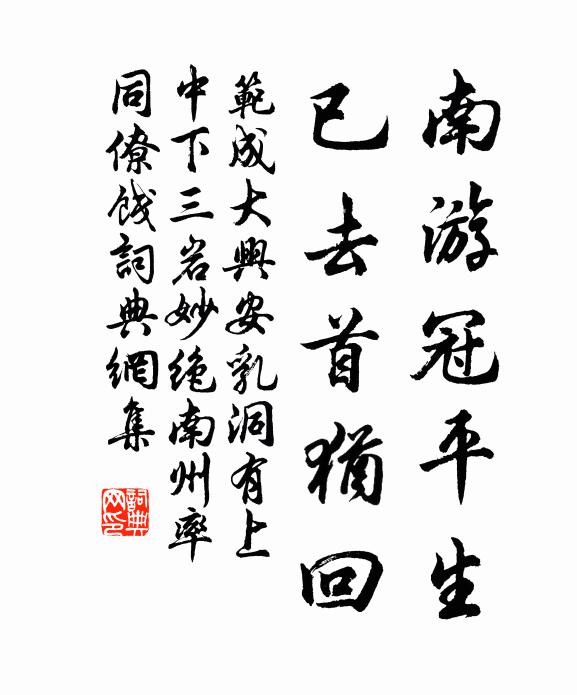 南游冠平生
已去首猶回
範成大興安乳洞有上
中下三岩妙绝南州率
同僚饯詞典網集
詞典网印